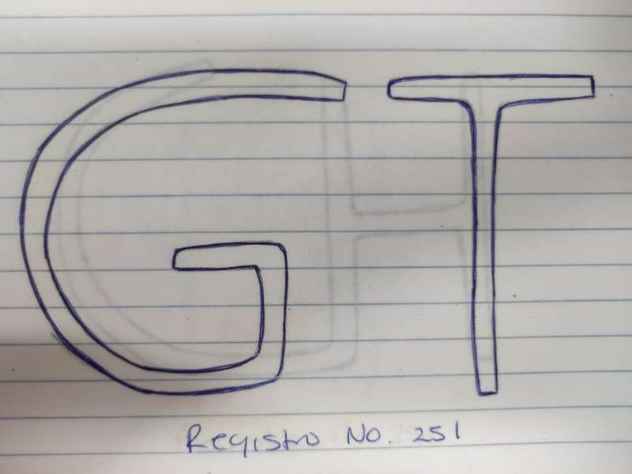 GT
Registro No. 251